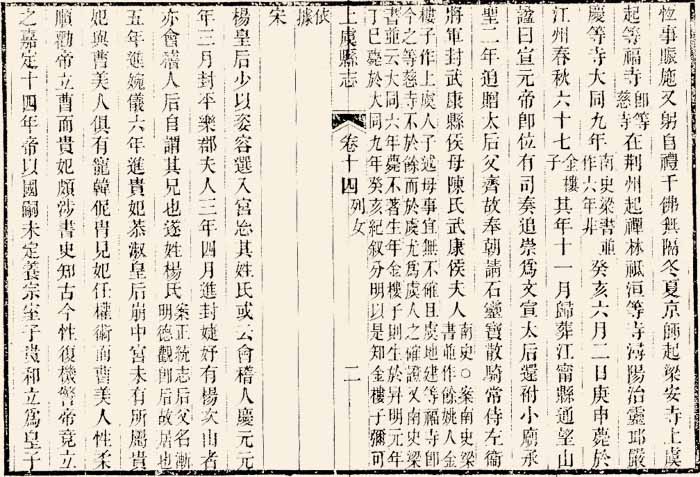 恆事賑施又躬自禮千佛無隔冬夏京師起梁安寺上虞
起等福寺卽等慈寺在荆州起禪林祇洹等寺潯陽治靈邱嚴
慶等寺大同九年南史梁書並作六年非癸亥六月二日庚申薨於
江州春秋六十七金樓子其年十一月歸葬江甯縣通望山
諡曰宣元帝卽位有司奏追崇爲文宣太后還祔小廟承
聖二年追贈太后父齊故奉朝請石靈寶散騎常侍左衞
將軍封武康縣侯母陳氏武康侯夫人南史○案南史梁書並作餘姚人金
樓子作上虞人子述母事宜無不確且虞地建等福寺卽
今之等慈寺不於餘而於虞尤爲虞人之確證又南史梁
書並云大同六年薨不著生年金樓子則生於昇明元年
丁巳薨於大同九年癸亥紀叙分明以是知金樓子彌可
依據
上虞縣志
卷十四 列女
二
宋
楊皇后少以姿容選入宮忘其姓氏或云會稽人慶元元
年三月封平樂郡夫人三年四月進封婕妤有楊次山者
亦會稽人后自謂其兄也遂姓楊氏案正統志后父名漸明德觀卽后故居也
五年進婉儀六年進貴妃恭淑皇后崩中宮未有所屬貴
妃與曹美人俱有寵韓侂胄見妃任權術而曹美人性柔
順勸帝立曹而貴妃頗涉書史知古今性復機警帝竟立
之嘉定十四年帝以國嗣未定養宗室子貴和立爲皇子